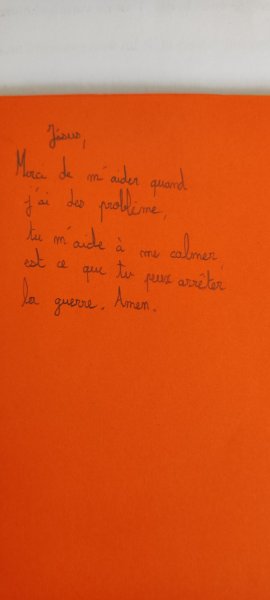 Jésus,
Merci de m'aider quand
j'ai des problème,
tu m'aide à me calmer,
est ce que tu peux arrêter
la guerre. Amen.